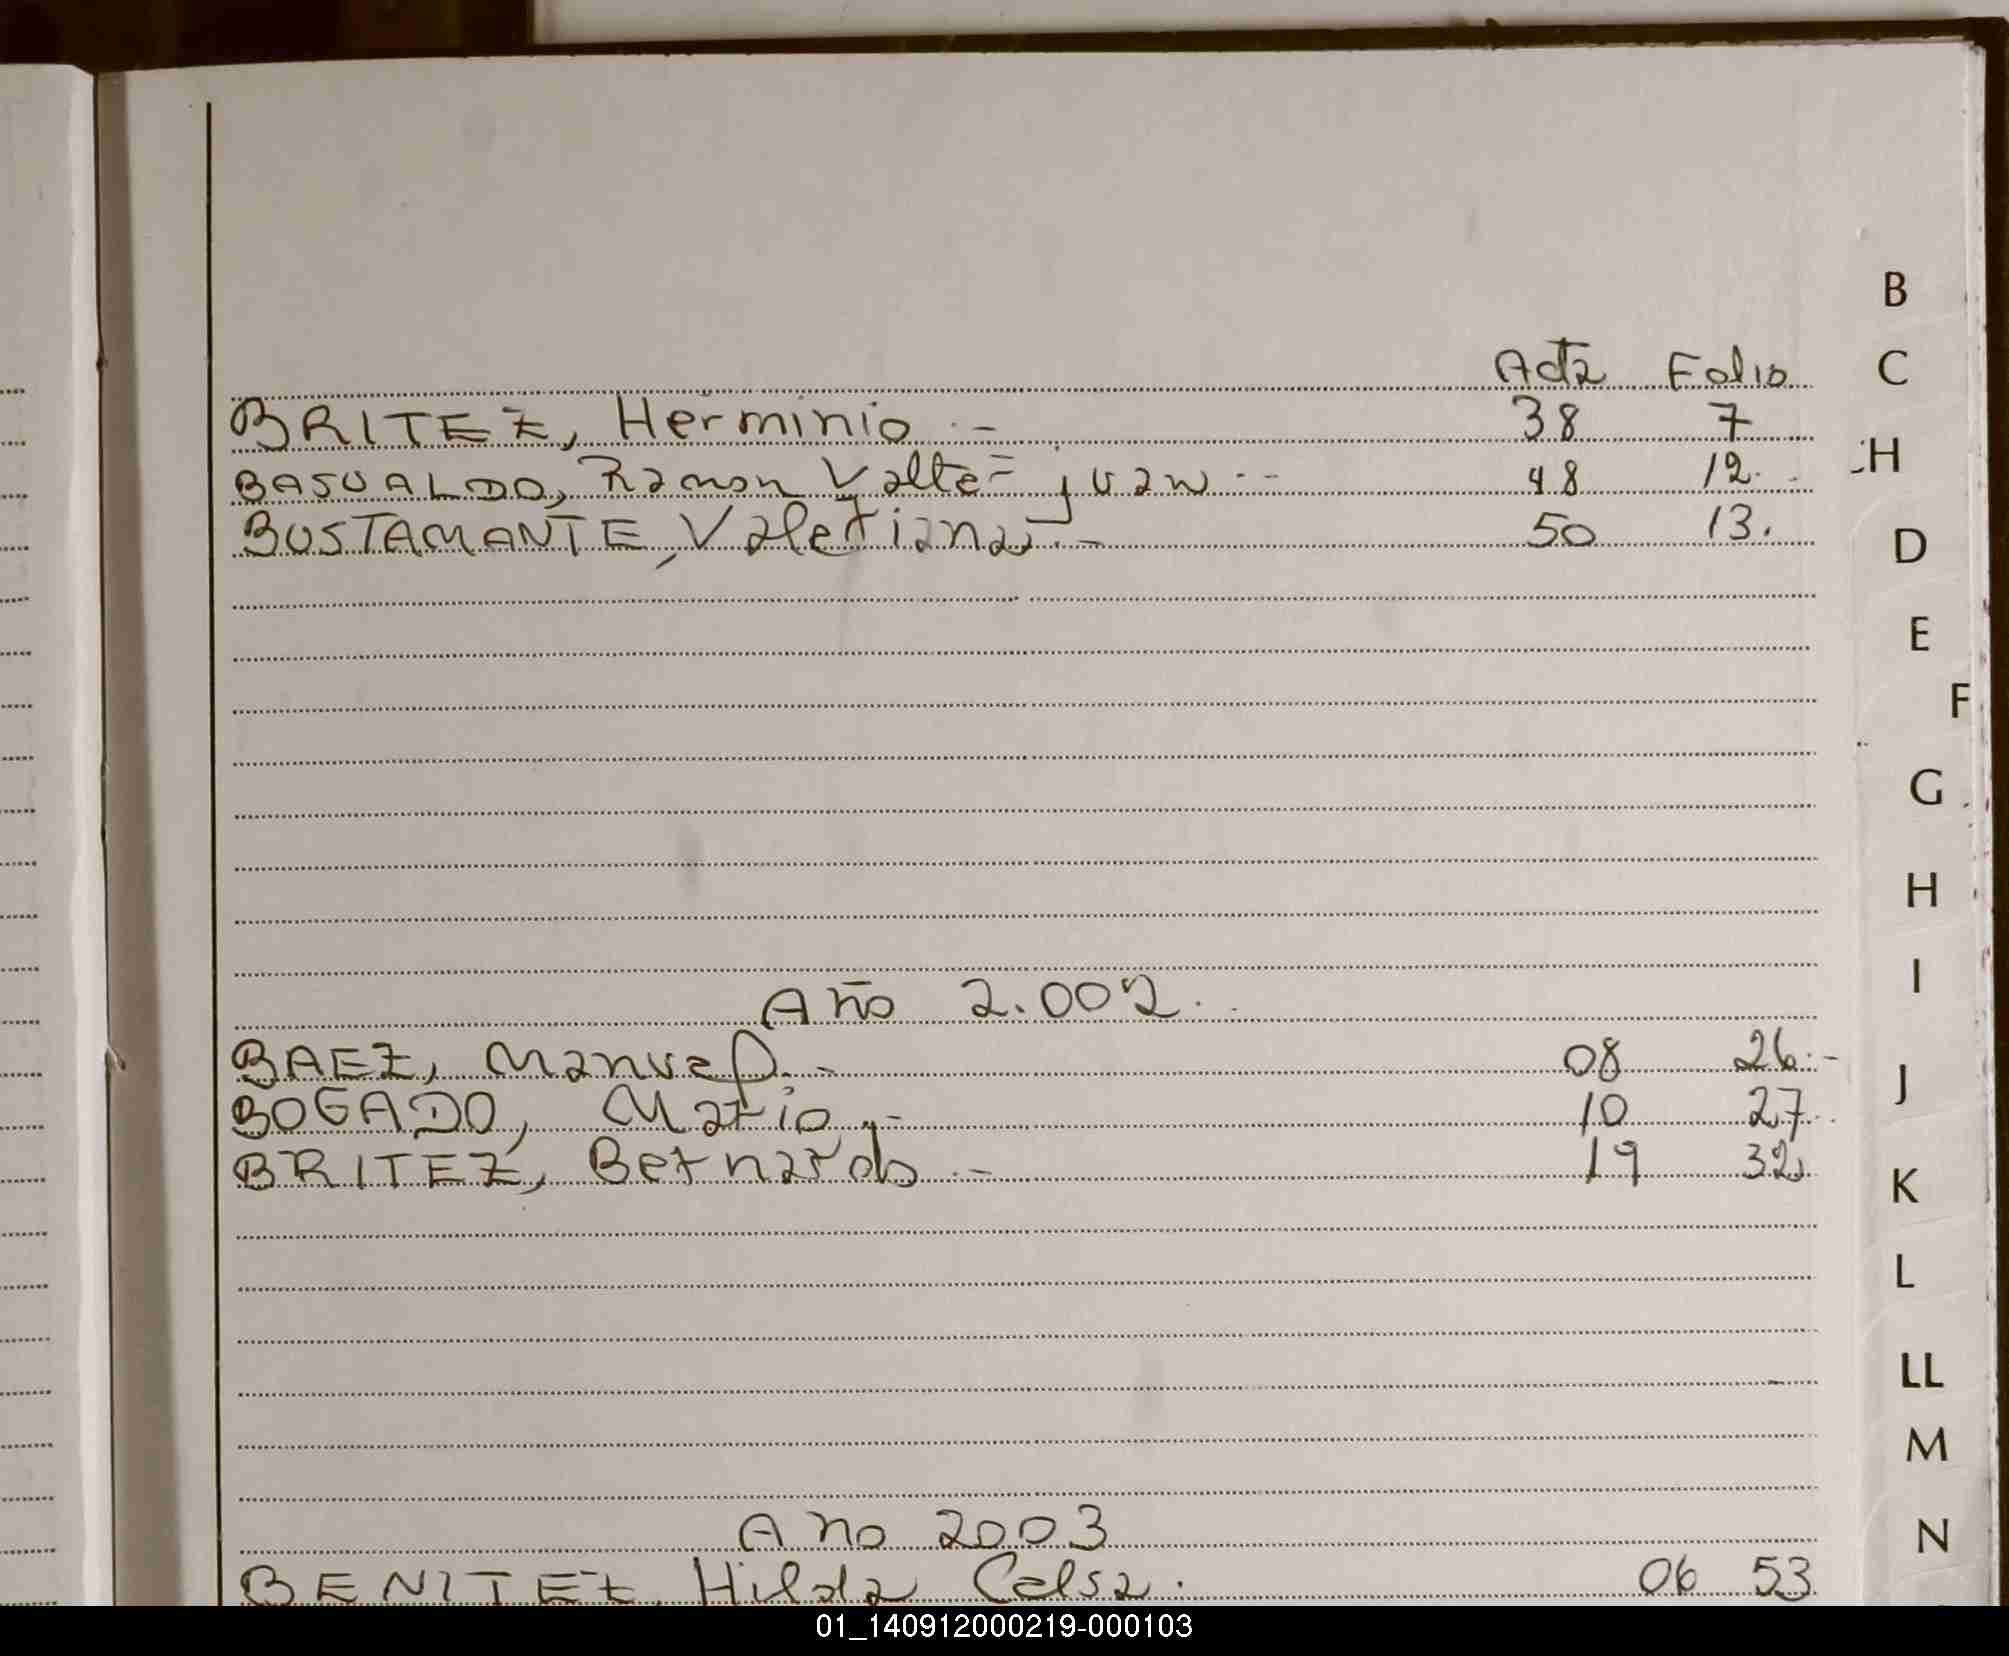 Acta Folio
BRITEZ, Herminio .- 38 7
BASUALDO, Ramon Valte= juan .-- 48 12.
BUSTAMANTE, Valeriana .- 50 13.
Año 2.002.
BAEZ, Manuel .- 08 26.-
BOGADO, Mario .- 10 27.
BRITEZ, Bernardo .- 19 32.
Año 2003
BENITEZ, Hilda Celsa. 06 53
B
C
H
D
E
F
G
H
I
J
K
L
LL
M
N
01_140912000219-000103